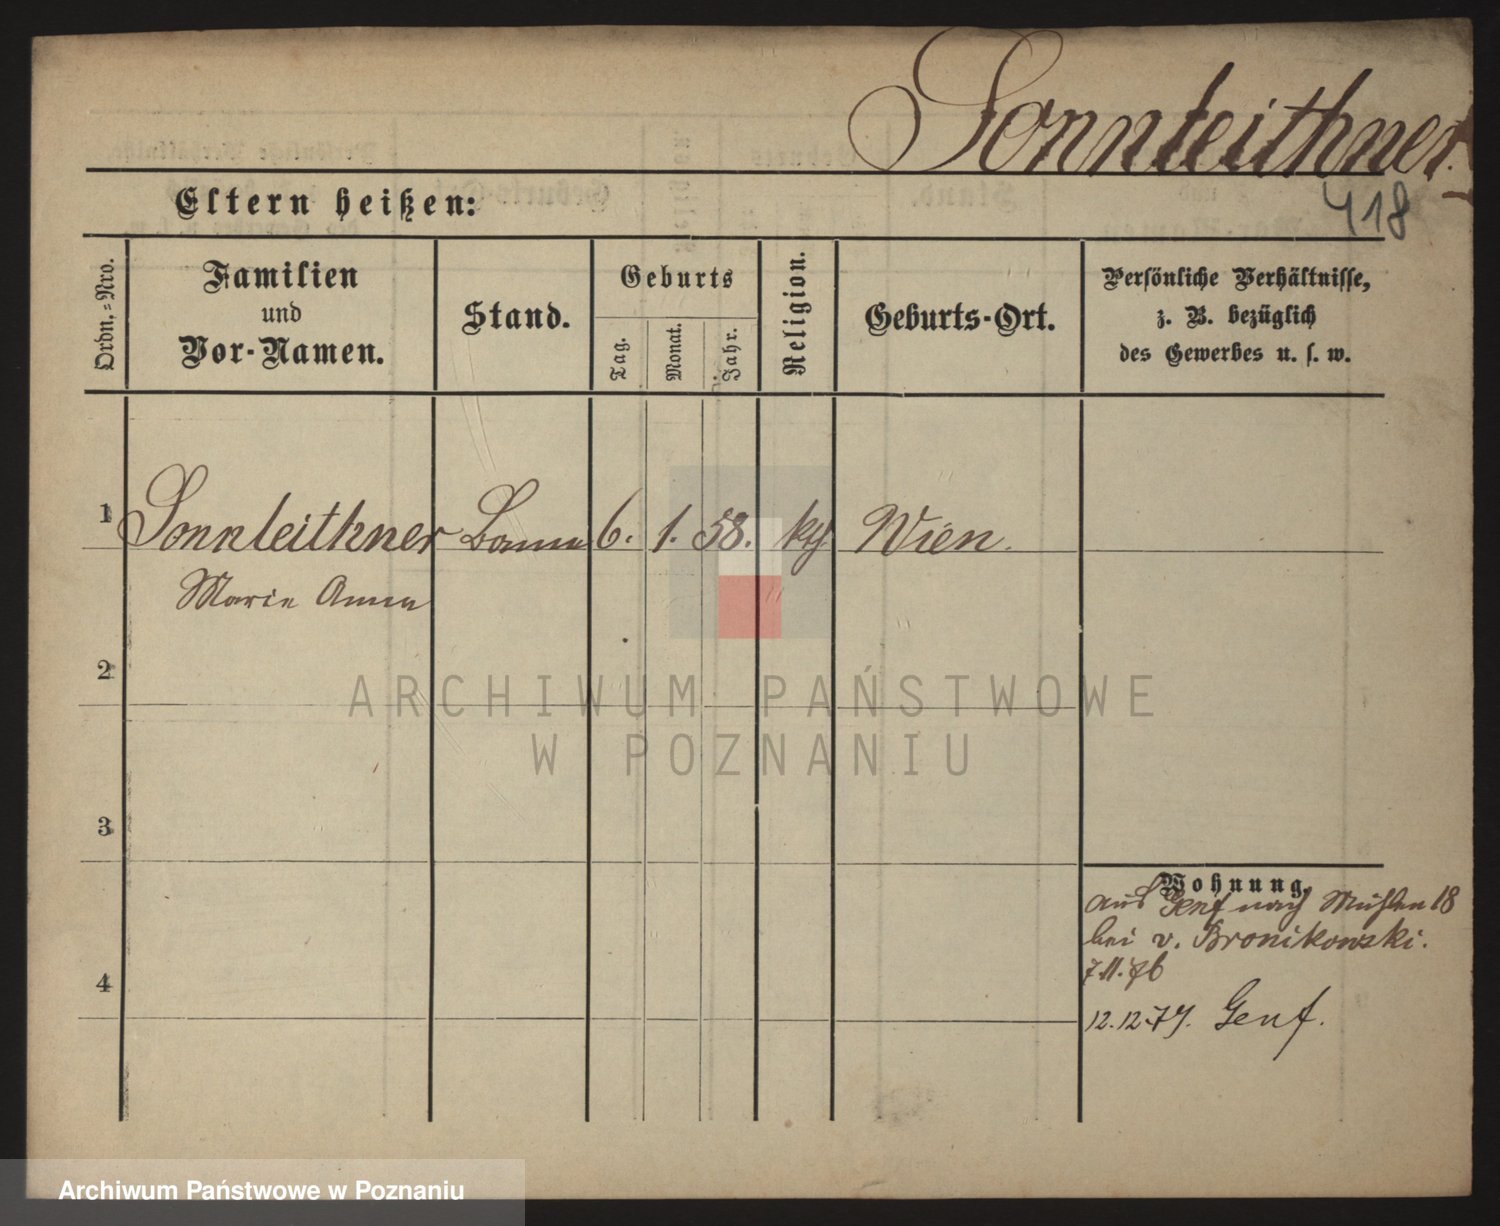 Sonnleithner.
418
Eltern heißen:
Ordn.-Nro.
Familien
und
Vor-Namen.
Stand.
Geburts
Tag.
Monat.
Jahr.
Religion.
Geburts-Ort.
Persönliche Verhältnisse,
z. B. bezüglich
des Gewerbes u. s. w.
1 Sonnleithner Bonne 6. 1. 58. kth Wien.
Marie Anna
2
ARCHIWUM PAŃSTWOWE
W POZNANIU
3
Wohnung.
aus Genf nach Mühlen 18
bei v. Bronikowski.
7.11.76
4
12.12.77. Genf.
Archiwum Państwowe w Poznaniu